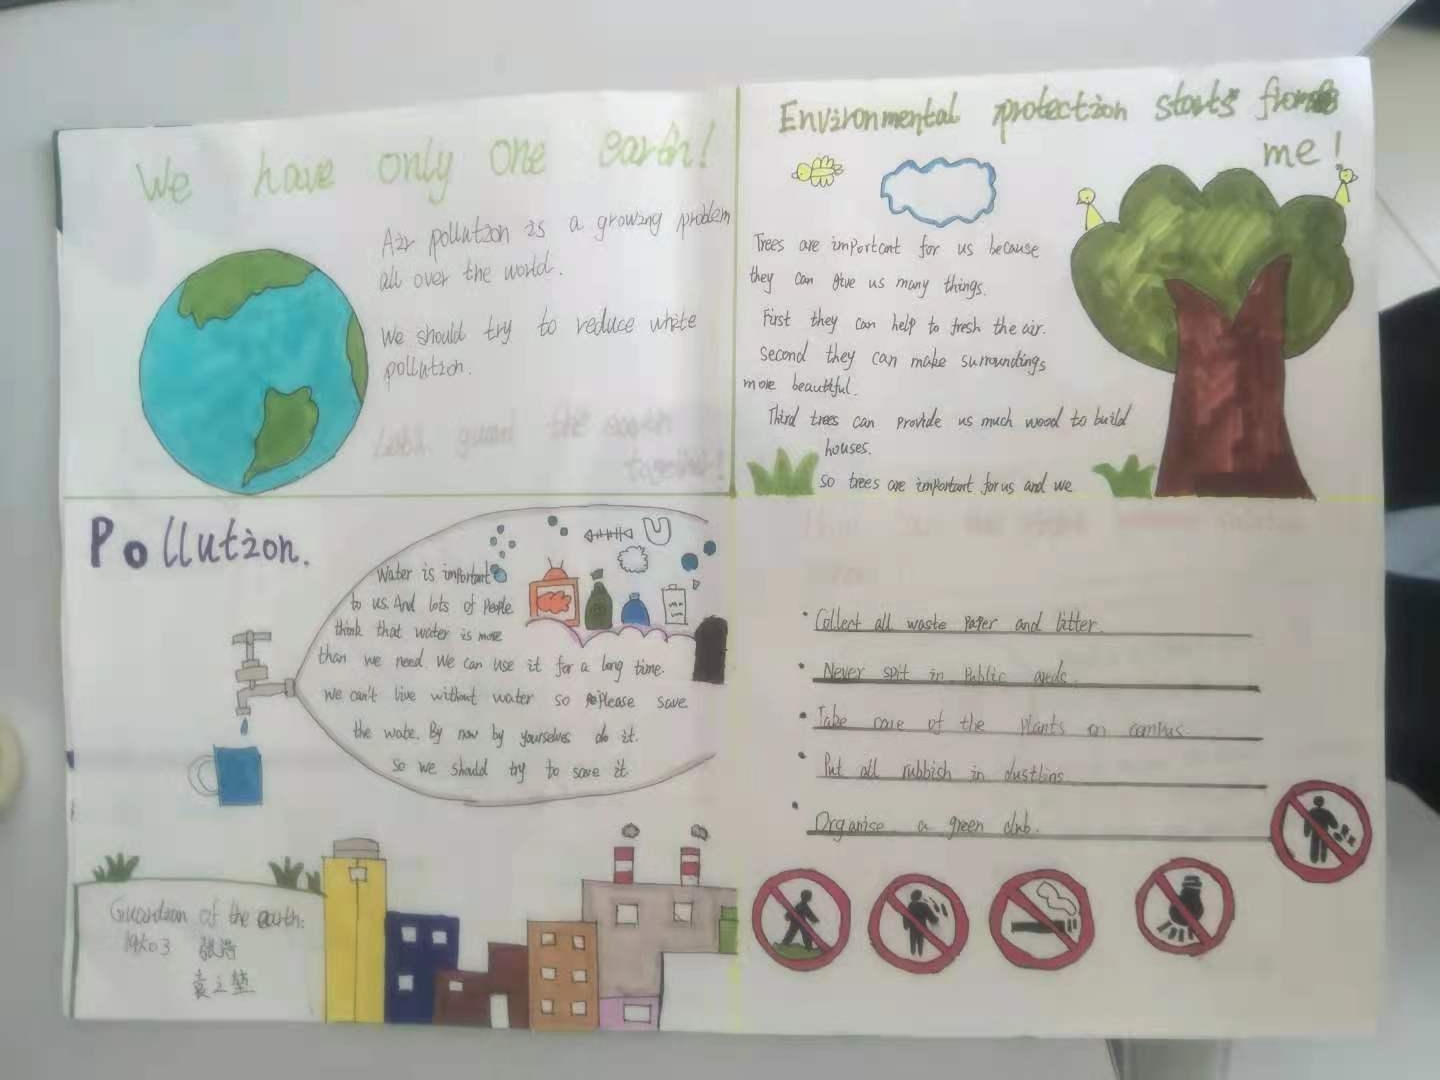 We have only one earth!
Air pollution is a growing problem
all over the world.
We should try to reduce white
pollution.
Environmental protection starts from
me!
Trees are important for us because
they can give us many things.
First they can help to fresh the air.
Second they can make surroundings
more beautiful.
Third trees can provide us much wood to build
houses.
so trees are important for us and we
Pollution.
Water is important
to us. And lots of people
think that water is more
than we need. We can use it for a long time.
we can't live without water so please save
the wate. By now by yourselves do it.
so we should try to save it.
Guardian of the earth:
袁之
Collect all waste paper and litter.
Never spit in public areds.
Take care of the plants on campus.
Put all rubbish in dustbins
Organise a green club.